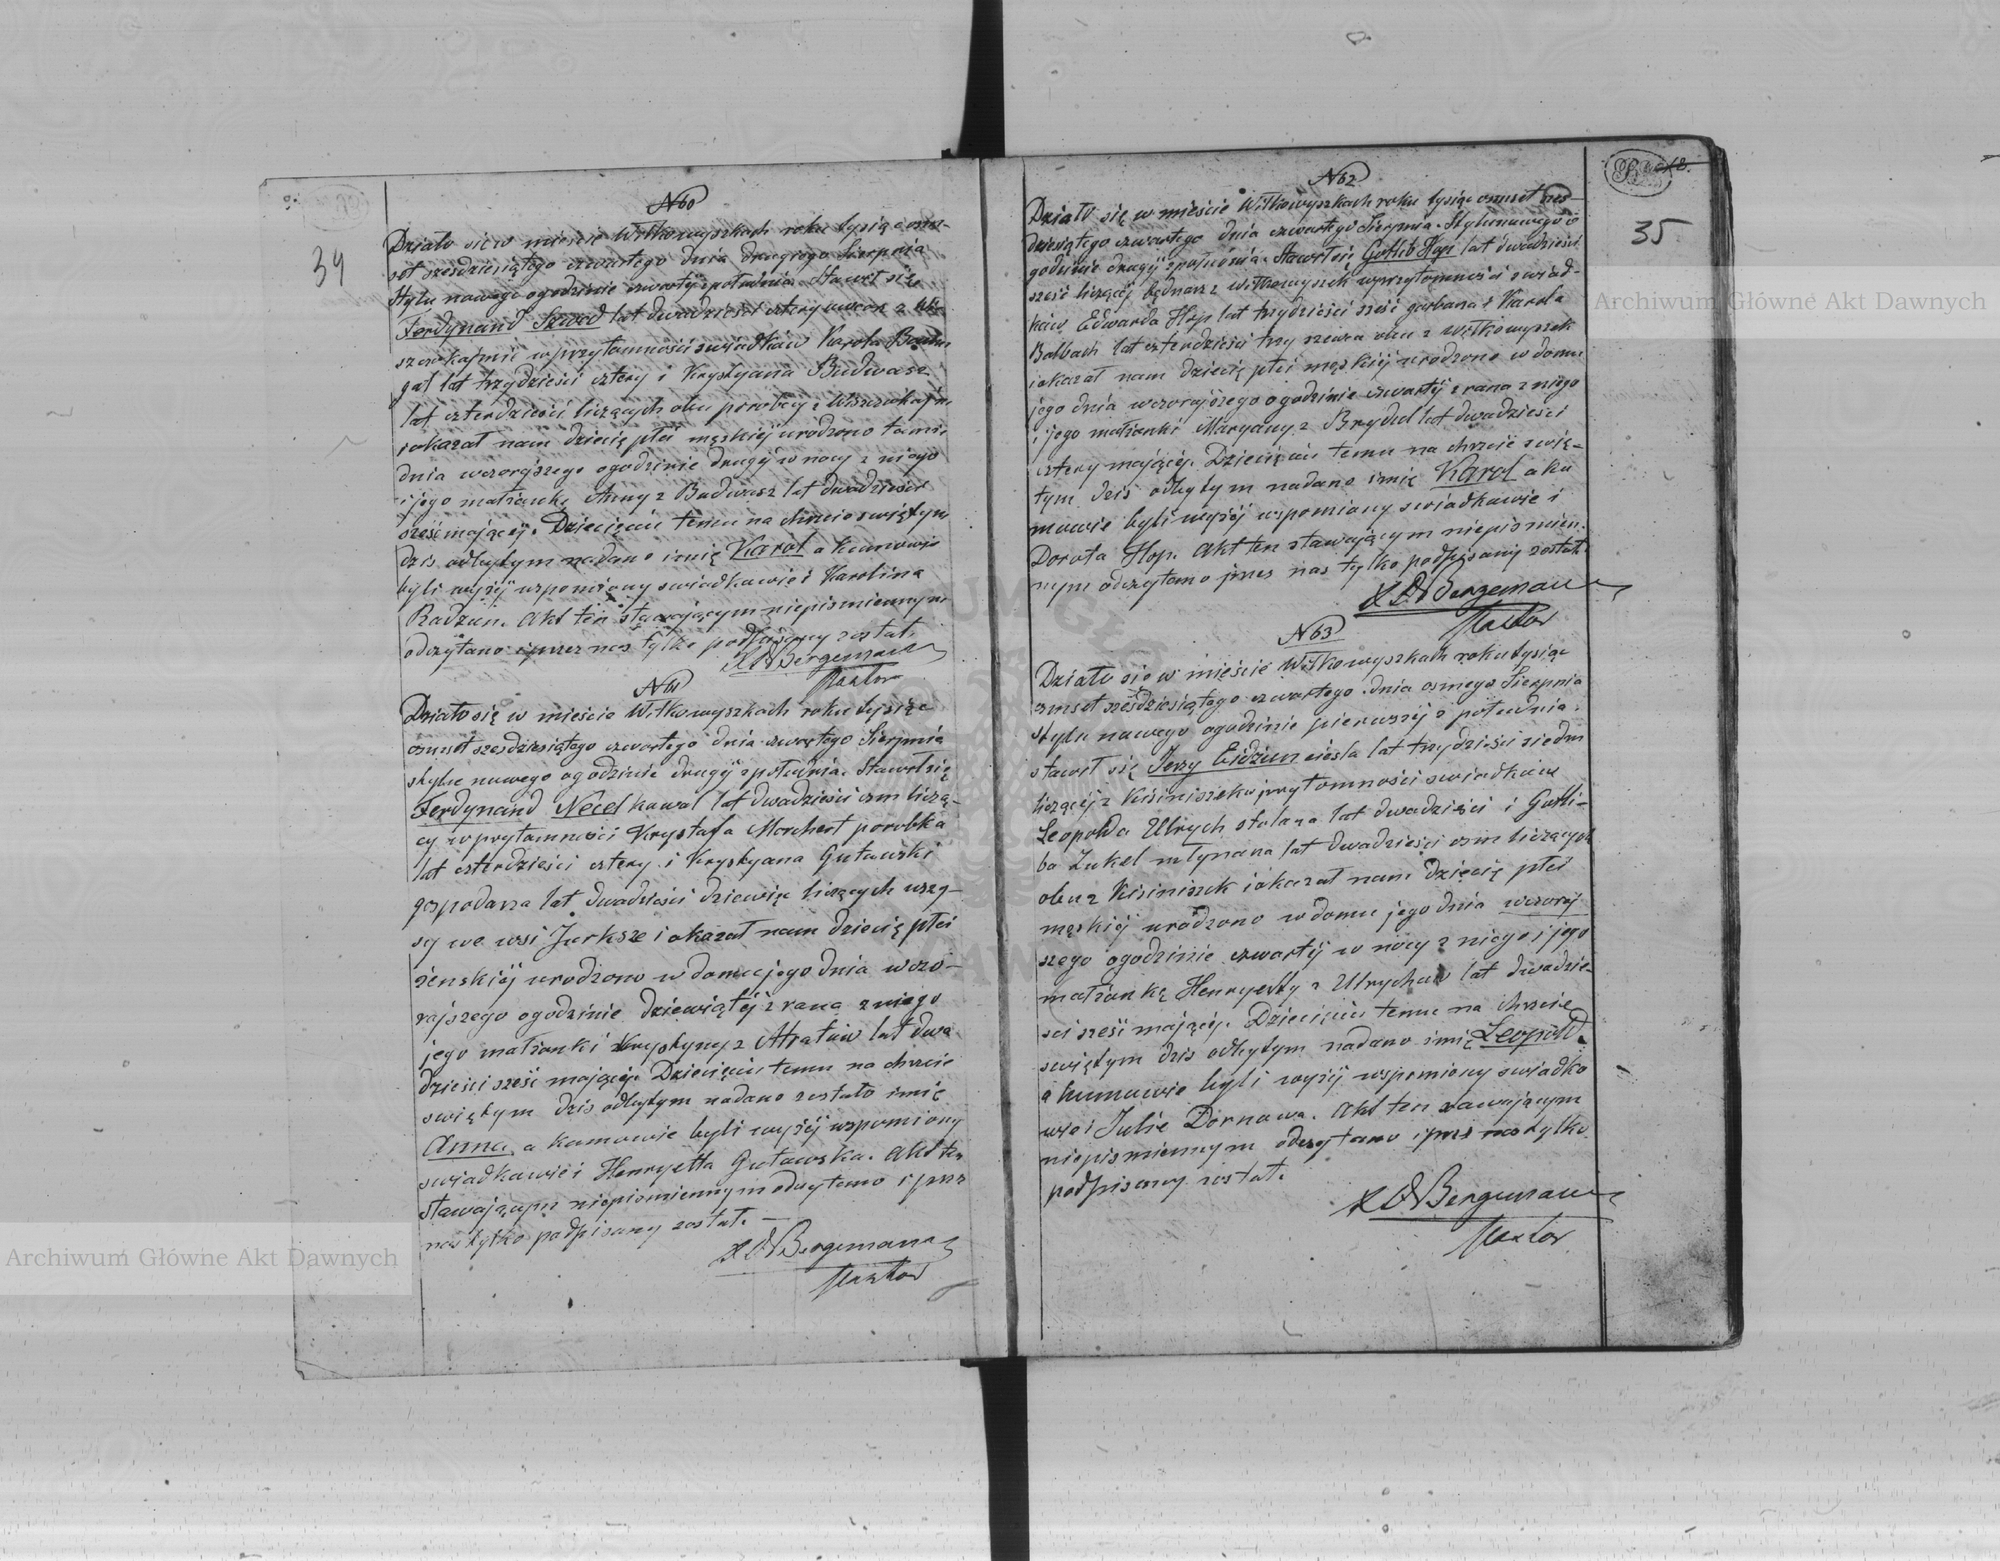 34
N 60
Działo się w mieście Wiłkowyszkach roku tysiąc ośm-
set sześdziesiątego czwartego dnia drugiego Sierpnia
Stylu nowego ogodzinie czwartij zpołudnia. Stawił się
Ferdynand lat dwadzieści cztery z
w przytomności swiadków Karola
lat trzydzieści cztery i Krystyana Budwasz
lat czterdzieści liczących obu
i okazał nam dziecię płci męskiéj urodzone tamże
dnia wczorajszego ogodzinie drugij w nocy z niego
i jego małżonki Anny z Budwasz lat dwadzieścia
sześć mającéj. Dziecięciu temu na chrzcie swiętym
dzis odbytym nadano imię Karol a kumowie
byli wyżéj wspomiony swiadkowie i Karolina
Radzun. Akt ten stawającym niepismiennym
odczytano i przez nas tylko podpisany został.
Bergemann
Pastor
N 61
Działo się w mieście Wiłkowyszkach roku tysiąc
osmset szesdziesiątego czwartego dnia czwartego Sierpnia
stylu nowego ogodzinie drugij zpołudnia. Stawił się
Ferdynand Necel kowal lat dwadzieści ośm liczą-
cy w przytomności Krystofa Morchert porobka
lat czterdzieści cztery i Krystyana Gutowski
gospodarza lat dwadzieści dziewięc liczących wszy-
scy we wsi Jurksze i okazał nam dziecię płci
żenskiéj urodzono w domu jego dnia wczo-
rajszego ogodzinie dziewiątéj z rana z niego
jego małżonki Krystyny z lat dwa
dzieści sześć mającéj. Dziecięciu temu na chrzcie
swiętym dzis odbytym nadano zostało imię
Anna, a kumowie byli wyżéj wspomiony
swiadkowie i Henryetta Gutowska. Akt ten
stawającym niepismiennym odczytano i przez
nas tylko podpisany został. —
Bergemann
Pastor
35
N 62
Działo się w mieście Wiłkowyszkach roku tysiąc osmset szes-
dziesiątego czwartego dnia czwartego Sierpnia. Stylu nowego o
godzinie drugij zpołudnia. Stawił się Gotlib Hop lat dwadzieści
sześć liczącéj bednarz z Wiłkowyszek wprzytomności swiad-
ków Edwarda Hop lat trzydzieści sześć garbarza i Karola
Balbach lat czterdzieści trzy szewca obu z Wiłkowyszek
i okazał nam dziecię płci męskiéj urodzono w domu
jego dnia wczorajszego ogodzinie czwartij z rana z niego
i jego małżonki Maryany z Brydul lat dwadzieści
cztery mającéj. Dziecięciu temu na chrzcie swię-
tym dzis odbytym nadano imię Karol a ku
mowie byli wyżéj wspomiany swiadkowie i
Dorota Hop. Akt ten stawającym niepismien-
nym odczytano przez nas tylko podpisany został.
Bergemann
Pastor
N 63
Działo się w mieście Wiłkowyszkach roku tysiąc
osmset sześdziesiątego czwartego dnia osmego Sierpnia
stylu nowego ogodzinie pierwszéj z południa.
stawił się Jerzy Eidzun ciesla lat trzydzieści siedm
liczącéj z Kisiniszek w przytomności swiadków
Leopolda Ulrych stolarza lat dwadzieści i Gotli-
ba Zukel młynarza lat dwadzieści osm liczących
obu z Kisiniszek i okazał nam dziecię płci
męskiéj urodzono w domu jego dnia wczoraj
szego ogodzinie czwartij w nocy z niego i jego
małżonkę Henryetty z Ulrychów lat dwadzie-
ści sześć mającéj. Dziecięciu temu na chrzcie
swiętym dzis odbytym nadano imię Leopold.
a kumowie byli wyżéj wspomiony swiadko
wie i Julie Dornowa. Akt ten stawającym
niepismiennym odczytano i przez nas tylko
podpisany został.
Bergemann
Pastor
Archiwum Główne Akt Dawnych
Archiwum Główne Akt Dawnych